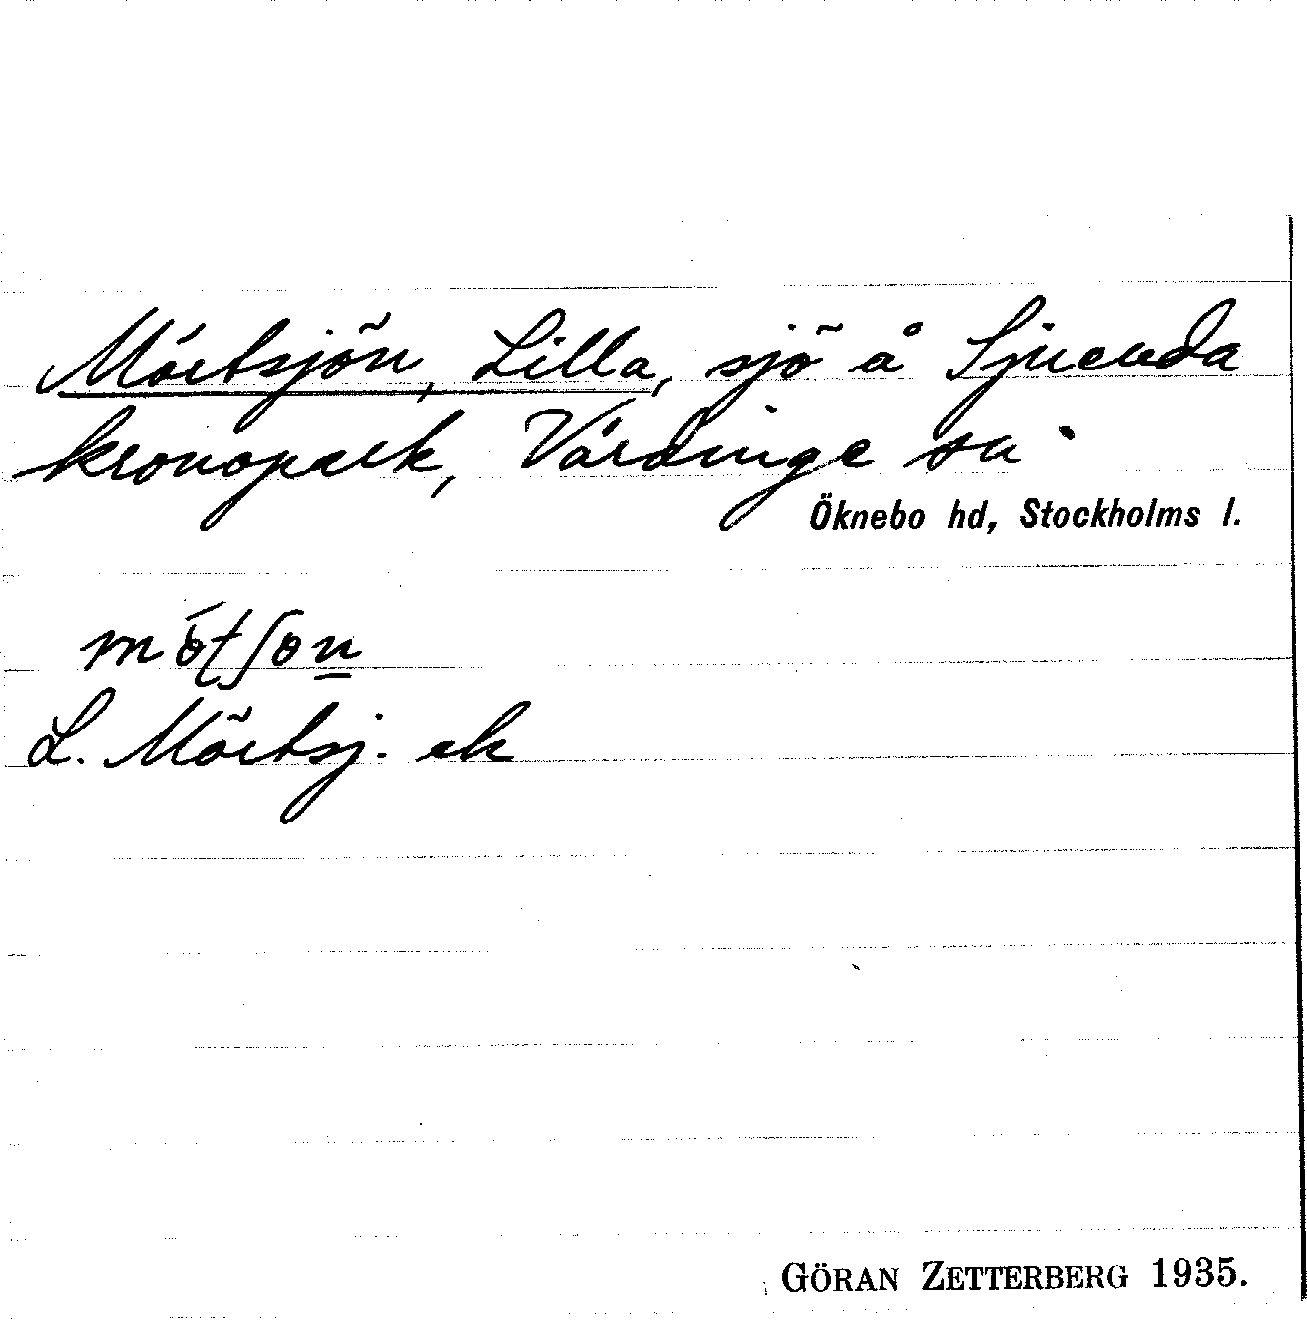 Mörtsjön, Lilla, sjö å Sjuenda
kronopark, Vårdinge sn
Öknebo hd, Stockholms l.
L. Mörtsj. ek
GÖRAN ZETTERBERG 1935.